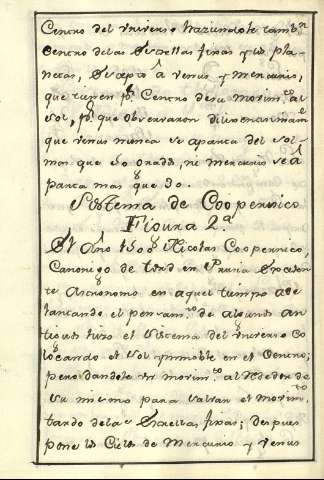 Centro del vniverso hazundole tambn
Centro delas Estrellas fixas y los pla-
netas, Excepto â venus y mercurio,
que tienen pr Centro desu movimto al
Sol, pr que observaron
que venus nunca se aparta del sol
mas que 50 grads, ni mercurio se â
parta mas que 30.
Systema de Coopernico
Figura 2a
El Año 1500 Nicolas Coopernico,
Canonigo de en Prusia Excelen
te Astronomo en aquel tiempo ade
lantando el pensamto de algunos an
tiguos hizo el Sistema del vniverso Co
locando el Sol ynmoble en el Centro;
pero dandole vn movimto alRededor de
su mismo para salvar el movimto
tardo delas Estrellas fixas; despues
pone los Cielos de Mercurio y Venus